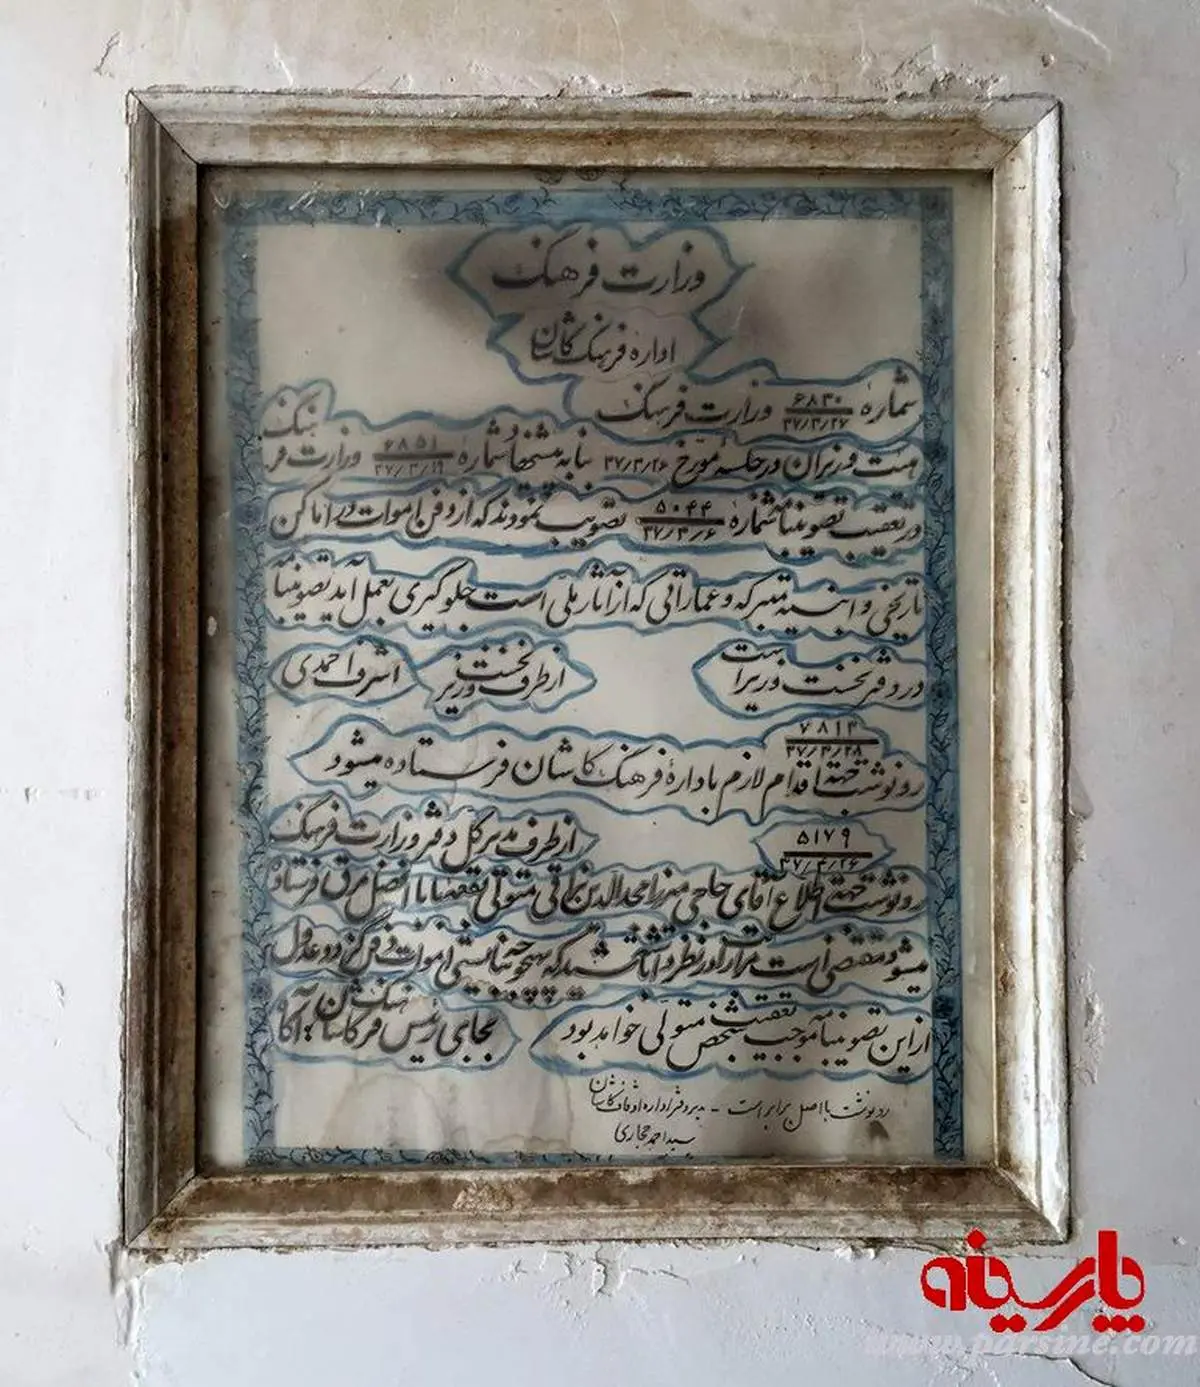 وزارت فرهنگ
اداره فرهنگ کاشان
شمارهٔ ۶۸۳۰ ۳۷/۳/۲۷ وزارت فرهنگ
هیئت وزیران در جلسهٔ مورخ ۳۷/۳/۲۶ بنا به پیشنهاد شمارهٔ ۶۸۵۱ ۳۷/۳/۱۹ وزارت فرهنگ
در تعقیب تصویبنامه شمارهٔ ۵۰۴۴ ۳۷/۳/۶ تصویب نمودند که از دفن اموات در اماکن
تاریخی و ابنیه متبرکه و عماراتی که از آثار ملی است جلوگیری بعمل آید تصویبنامه
در دفتر نخست وزیر است
از طرف نخست وزیر
اشرف احمدی
۷۸۱۴ ۳۷/۳/۲۸
رونوشت جهت اقدام لازم باداره فرهنگ کاشان فرستاده میشود
از طرف مدیر کل دفتر وزارت فرهنگ
۵۱۷۹ ۳۷/۴/۲۶
رونوشت جهت اطلاع آقای حاجی میرزا مجدالدین نراقی متولی بقعه بابا افضل مرق فرستاده
میشود مقتضی است مراتب را در نظر داشته باشید که بهیچوجه نبایستی اموات دفن گردد و عدول
از این تصویبنامه موجب تعقیب شخص متولی خواهد بود
بجای رئیس فرهنگ کاشان آگاه
رونوشت با اصل برابر است - مدیر دفتر اداره اوقاف کاشان
سید احمد حجاری
پارسینه
www.parsine.com